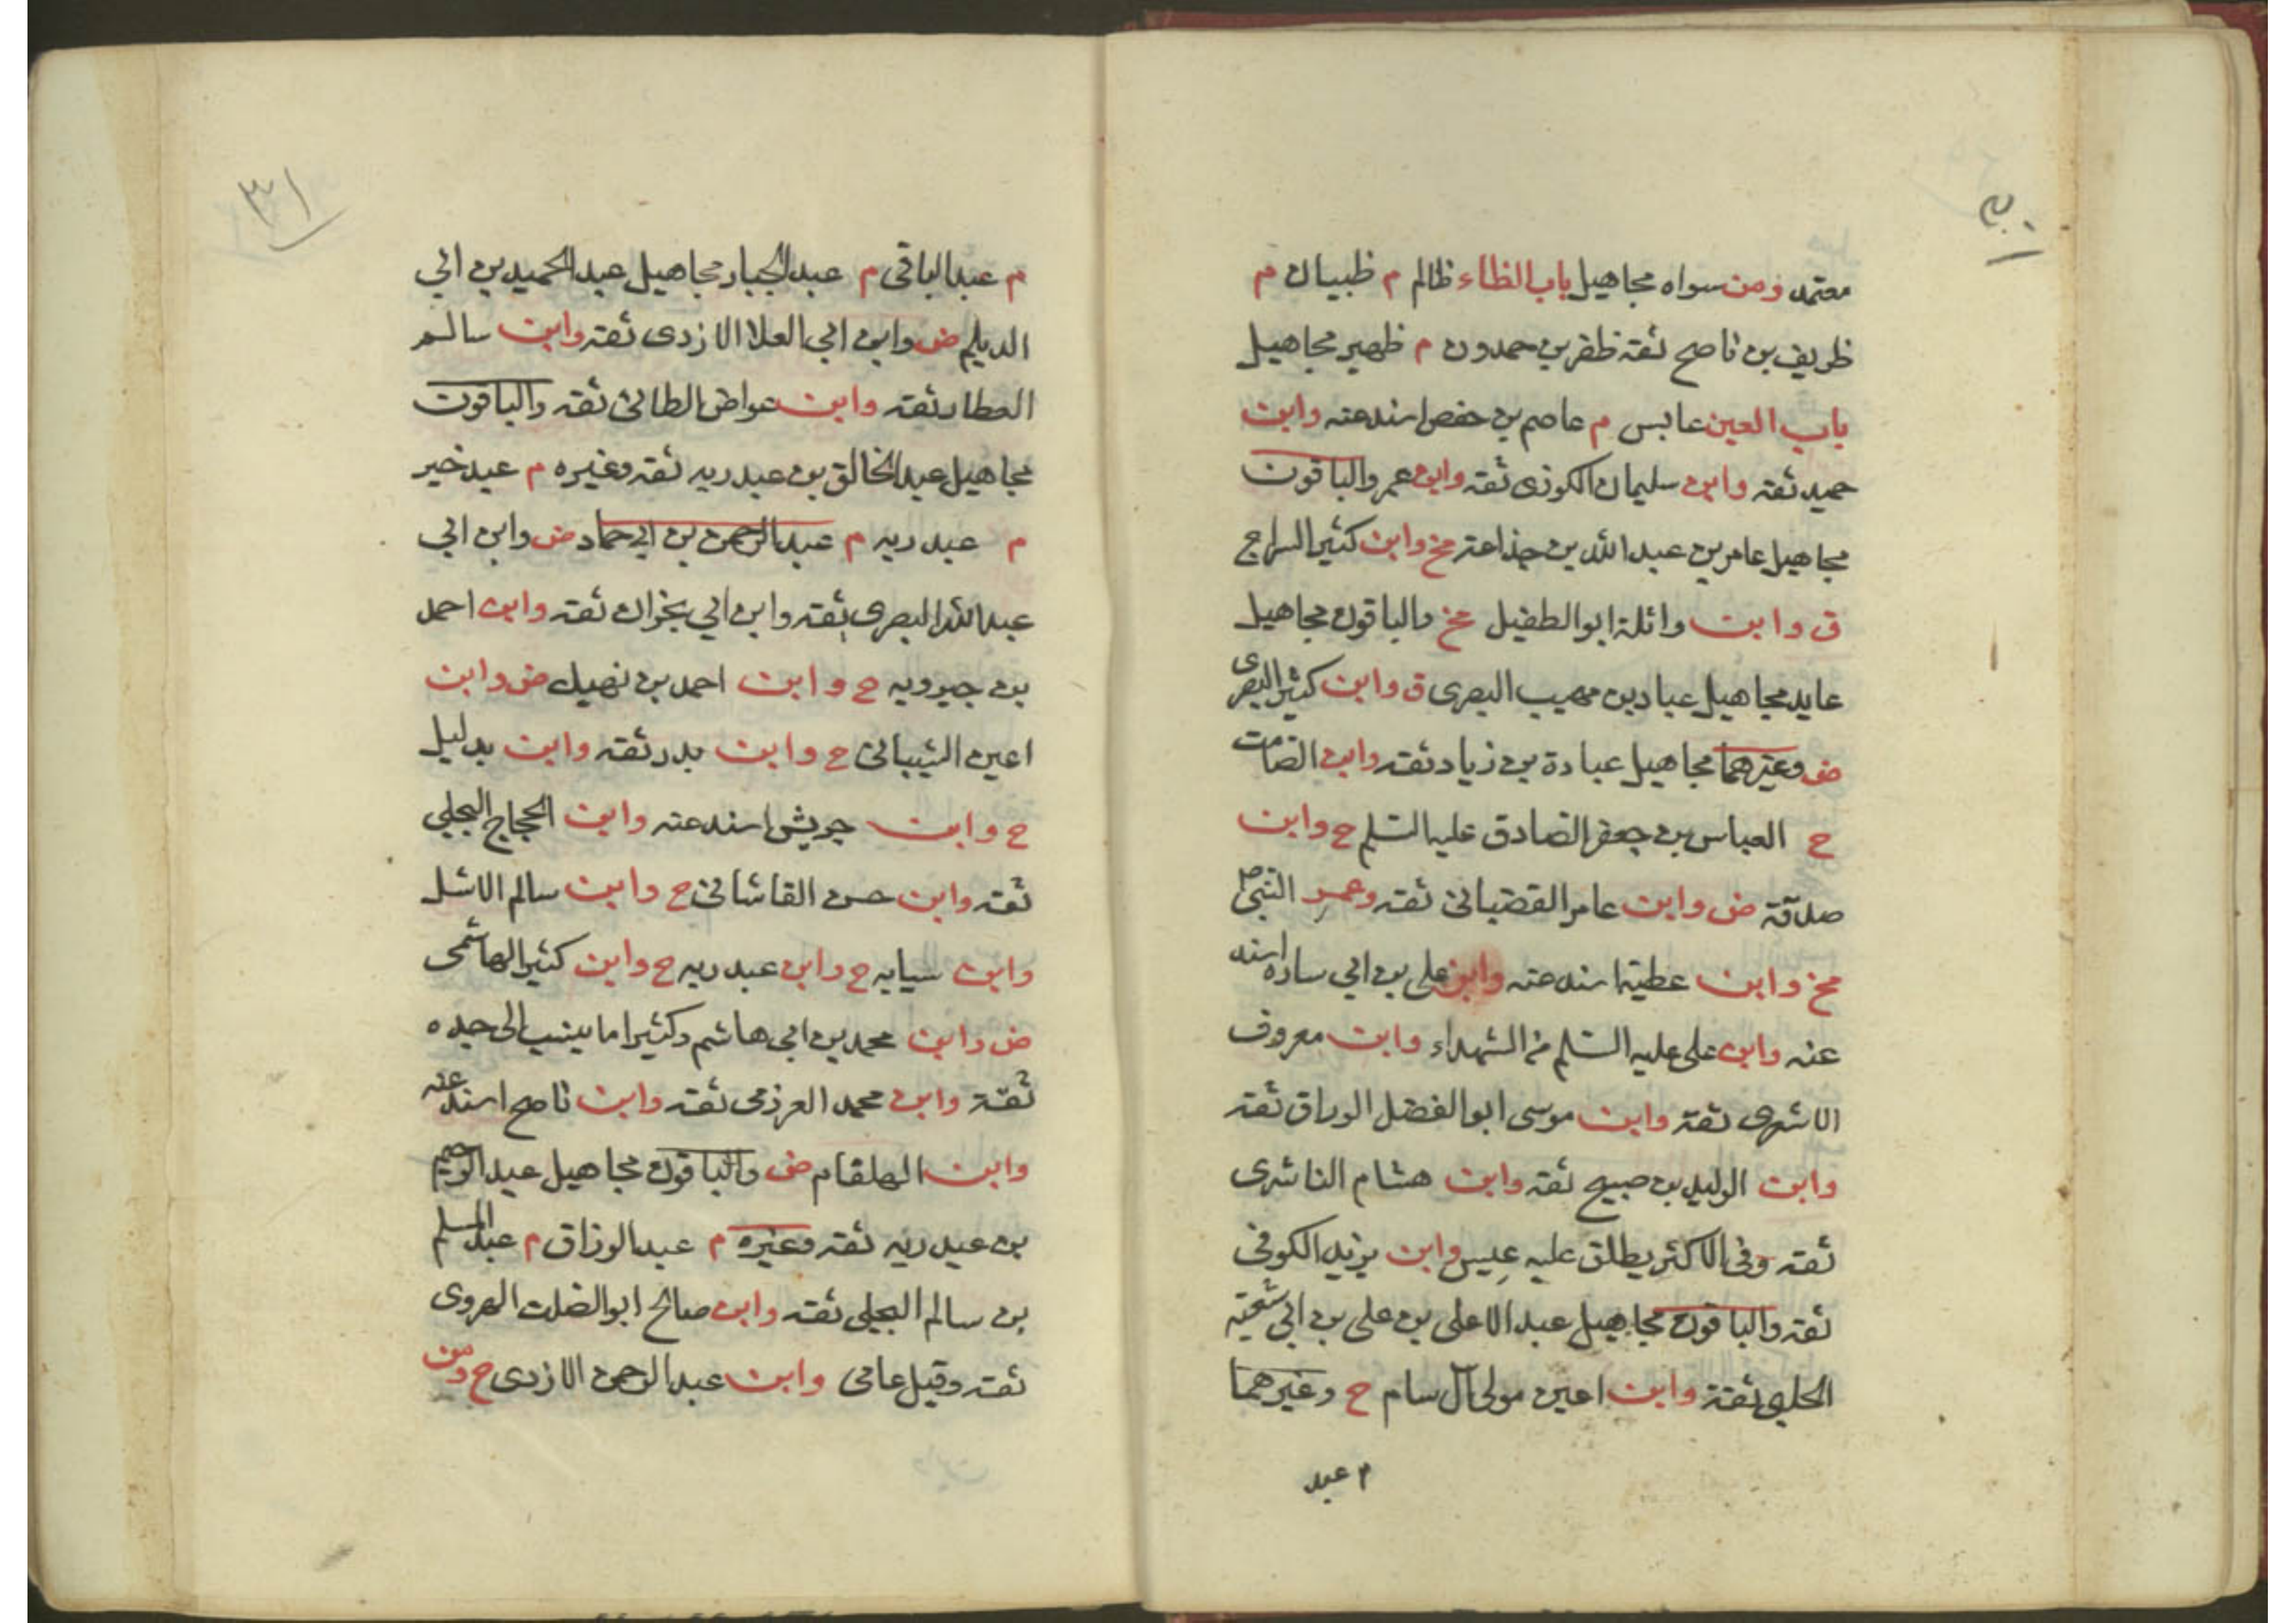 ٣٠
معتمد ومن سواه مجاهيل باب الظاء ظالم م ظبيان م
ظريف بن ناصح ثقة ظفر بن حمدون م ظهير مجاهيل
باب العين عابس م عاصم بن حفص اسند عنه وابن
حميد ثقة وابن سليمان الكوزى ثقة وابن عمر والباقون
مجاهيل عامر بن عبد الله بن جذاعة مخ وابن كثير السراج
ق وابن واثلة ابو الطفيل مخ والباقون مجاهيل
عايد مجاهيل عباد بن صهيب البصرى ق وابن كثير البصرى
ض وغيرهما مجاهيل عبادة بن زياد ثقة وابن الصامت
ح العباس بن جعفر الصادق عليه السلم ح وابن
صدقة ض وابن عامر القضبانى ثقة وعم النبى ص
مخ وابن عطية اسند عنه وابن على بن ابي ساره اسند
عنه وابن على عليه السلم من الشهداء وابن معروف
الاشهرى ثقة وابن موسى ابو الفضل الوراق ثقة
وابن الوليد بن صبيح ثقة وابن هشام الناشرى
ثقة وفى الاكثر يطلق عليه عبيس وابن يزيد الكوفى
ثقة والباقون مجاهيل عبد الاعلى بن على بن ابي شعبة
الحلبى ثقة وابن اعين مولى آل سام ح وغيرهما
م عبد
٣١
م عبد الباقى م عبد الجبار مجاهيل عبد الحميد بن ابي
الديلم ض وابن ابي العلا الازدى ثقة وابن سالم
العطار ثقة وابن عواض الطائى ثقة والباقون
مجاهيل عبد الخالق بن عبد ربه ثقة وغيره م عبد خير
م عبد ربه م عبد الرحمن بن ابي حماد ض وابن ابي
عبد الله البصرى ثقة وابن ابي نجران ثقة وابن احمد
بن جبرويه ح وابن احمد بن نهيك ض وابن
اعين الشيبانى ح وابن بدر ثقة وابن بديل
ح وابن جريش اسند عنه وابن الحجاج البجلي
ثقة وابن حسن القاشانى ح وابن سالم الاشل
وابن سيابه ح وابن عبد ربه ح وابن كثير الهاشمى
ض وابن محمد بن ابي هاشم وكثيرا ما ينسب الى جده
ثقة وابن محمد العرزمى ثقة وابن ناصح اسند عنه
وابن الهلقام ض والباقون مجاهيل عبد الرحيم
بن عبد ربه ثقة وغيره م عبد الرزاق م عبد السلم
بن سالم البجلي ثقة وابن صالح ابو الصلت الهروى
ثقة وقيل عامى وابن عبد الرحمن الازدى ح ومن